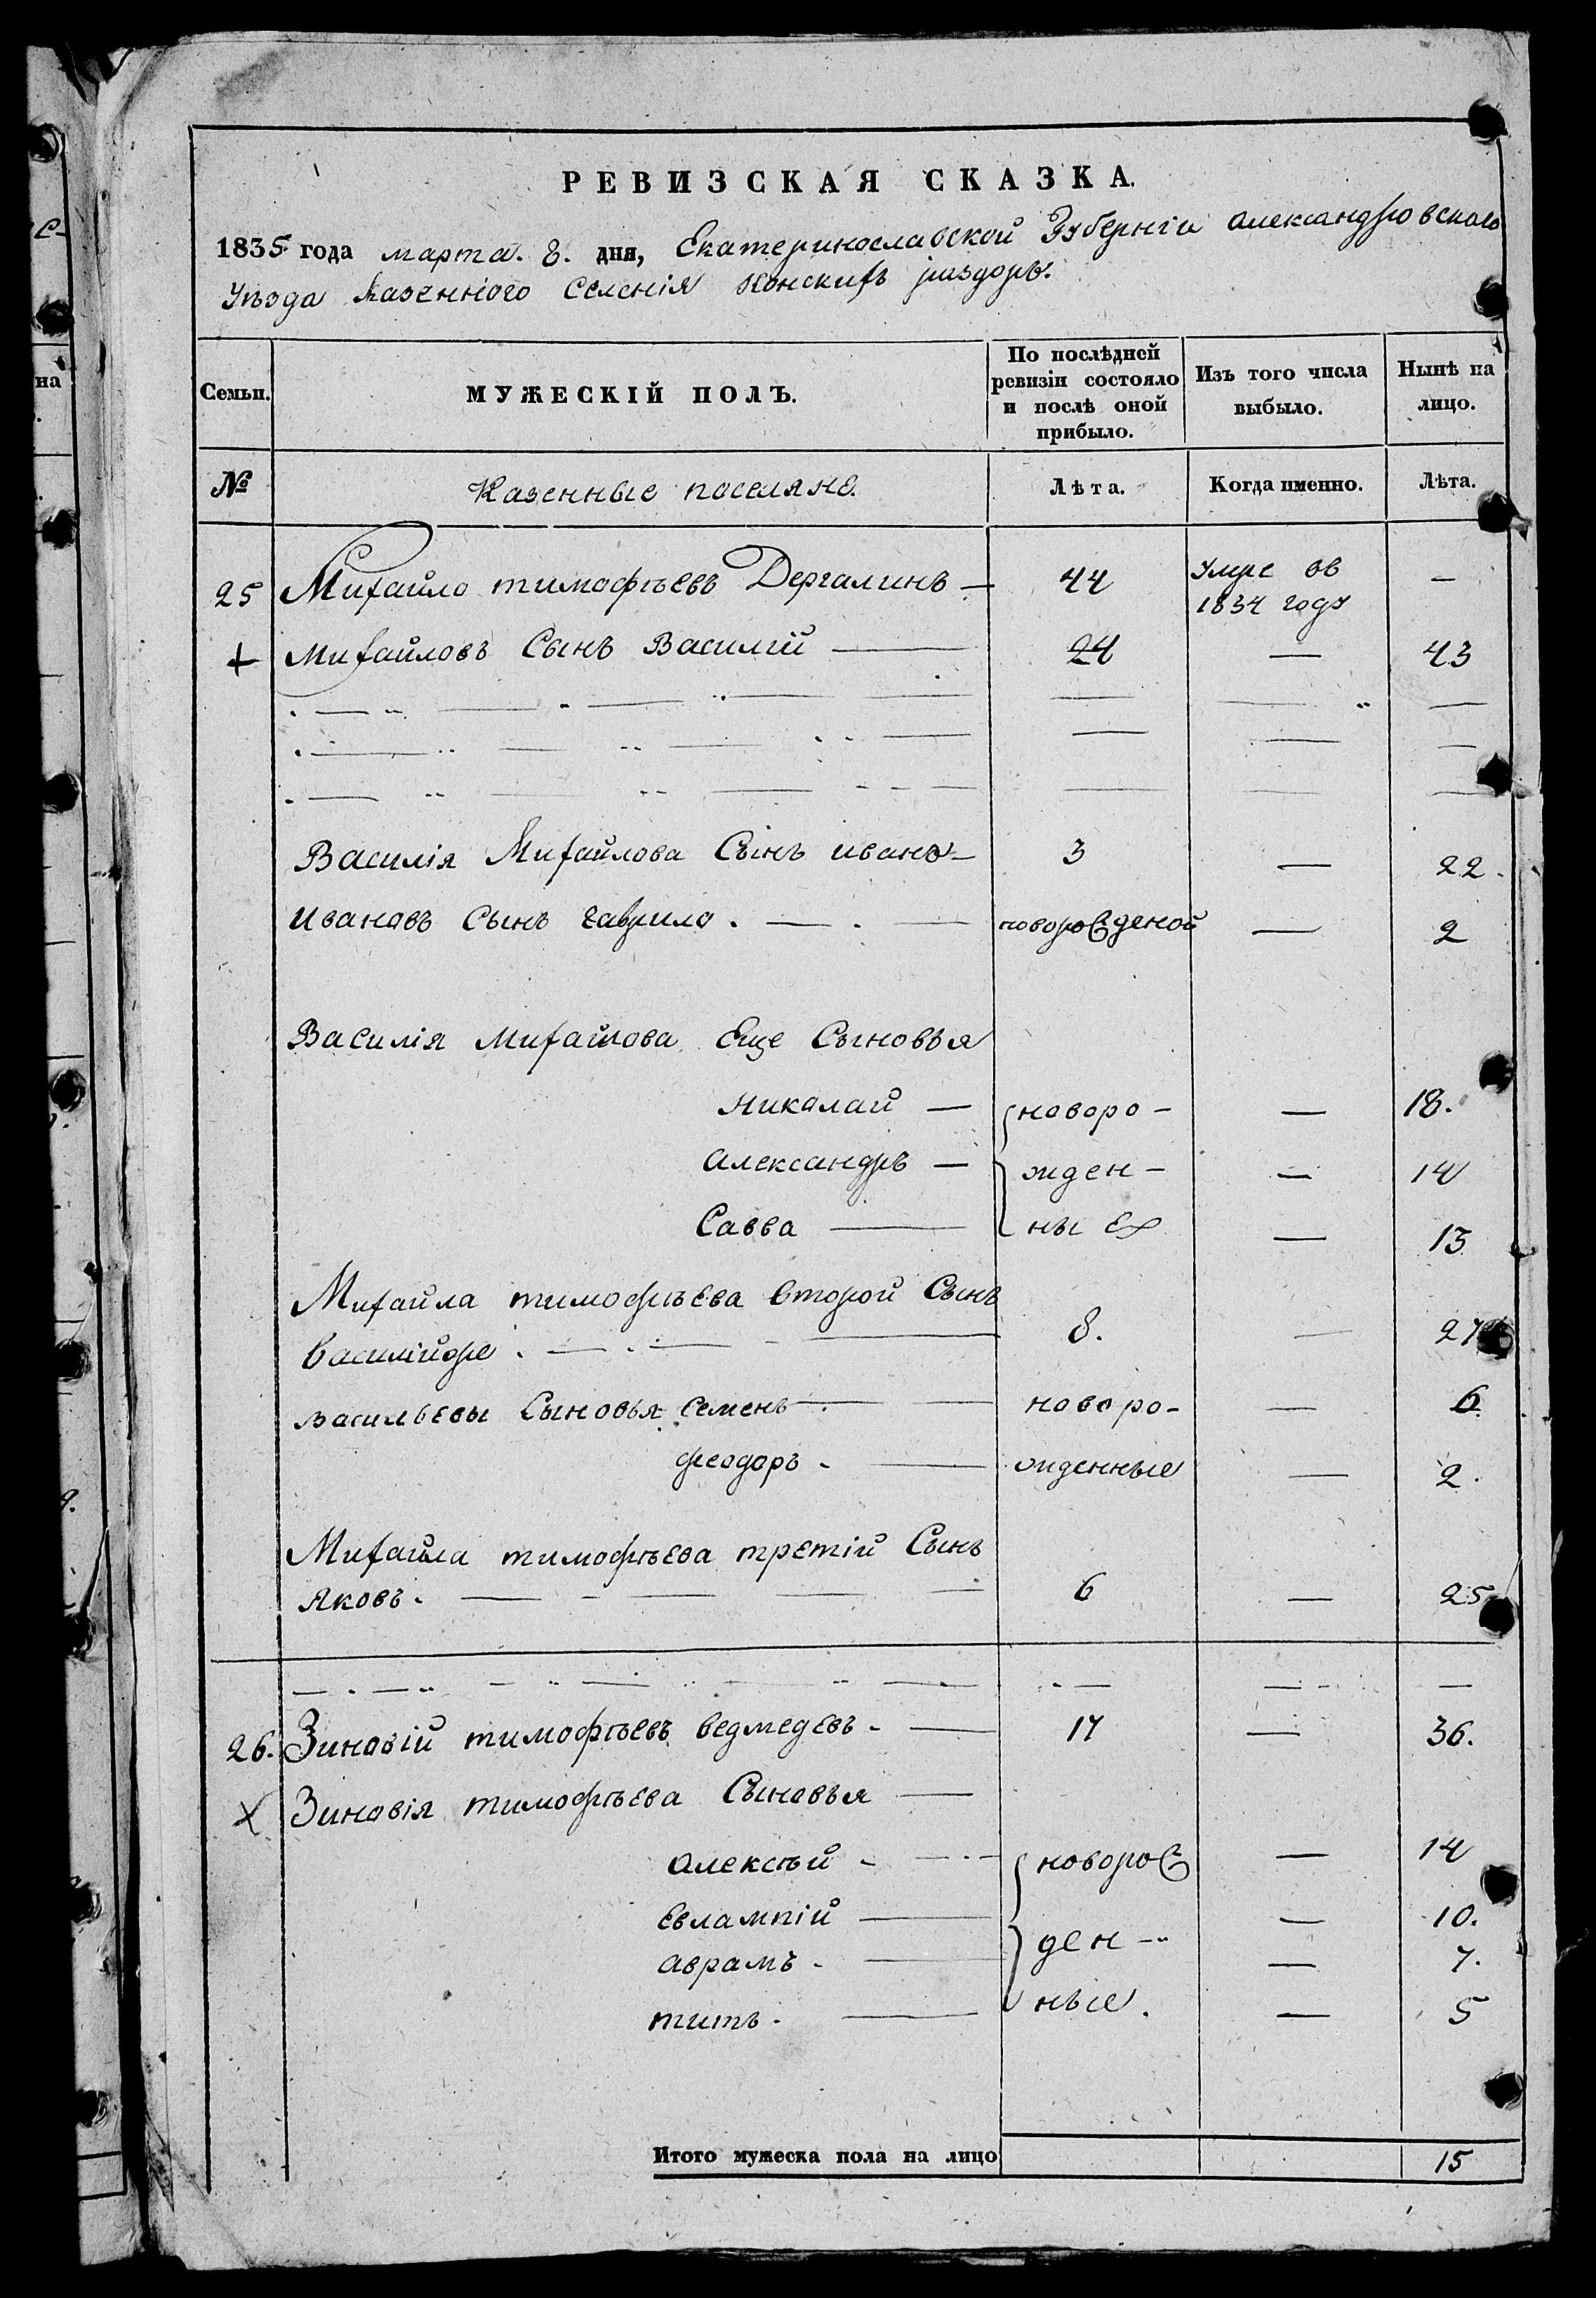 РЕВИЗСКАЯ СКАЗКА.
1835 года марта. 8. дня, Екатеринославской Губерніи александровскаго
Уѣзда Казеннного Селенія Конскихъ раздоръ.
Семьи. МУЖЕСКІЙ ПОЛЪ. По послѣдней ревизіи состояло и послѣ оной прибыло. Изъ того числа выбыло. Нынѣ на лицо.
№ Казенные поселяне. Лѣта. Когда именно. Лѣта.
25 Михайло тимофѣевъ Дергалинъ — 44 Умре въ 1834 году —
+ Михайловъ Сынъ Василій — 24 — 43
Василія Михайлова Сынъ иванъ — 3 — 22.
Ивановъ Сынъ гаврило. — новорожденой — 2
Василія Михайлова Еще Сыновья
Николай — новоро- — 18.
александръ — жден- — 14
Савва — ные — 13
Михайла тимофѣева второй Сынъ
василій же . — 8. — 27
васильевы Сыновья семенъ — новоро- — 6.
феодоръ . — жденные — 2.
Михайла тимофѣева третій Сынъ
Яковъ . — 6 — 25
26. Зиновій тимофѣевъ ведмедевъ . — 17 — 36.
X Зиновія тимофѣева Сыновья —
алексѣй . — новорож — 14
Евлампій — 10.
аврамъ . — ден — 7.
титъ . — ные . — 5
Итого мужеска пола на лицо 15